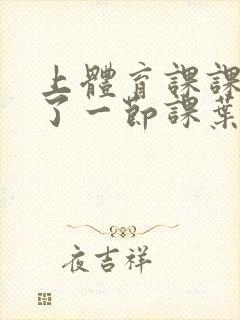 上體育課課
了一節課葉
夜吉祥